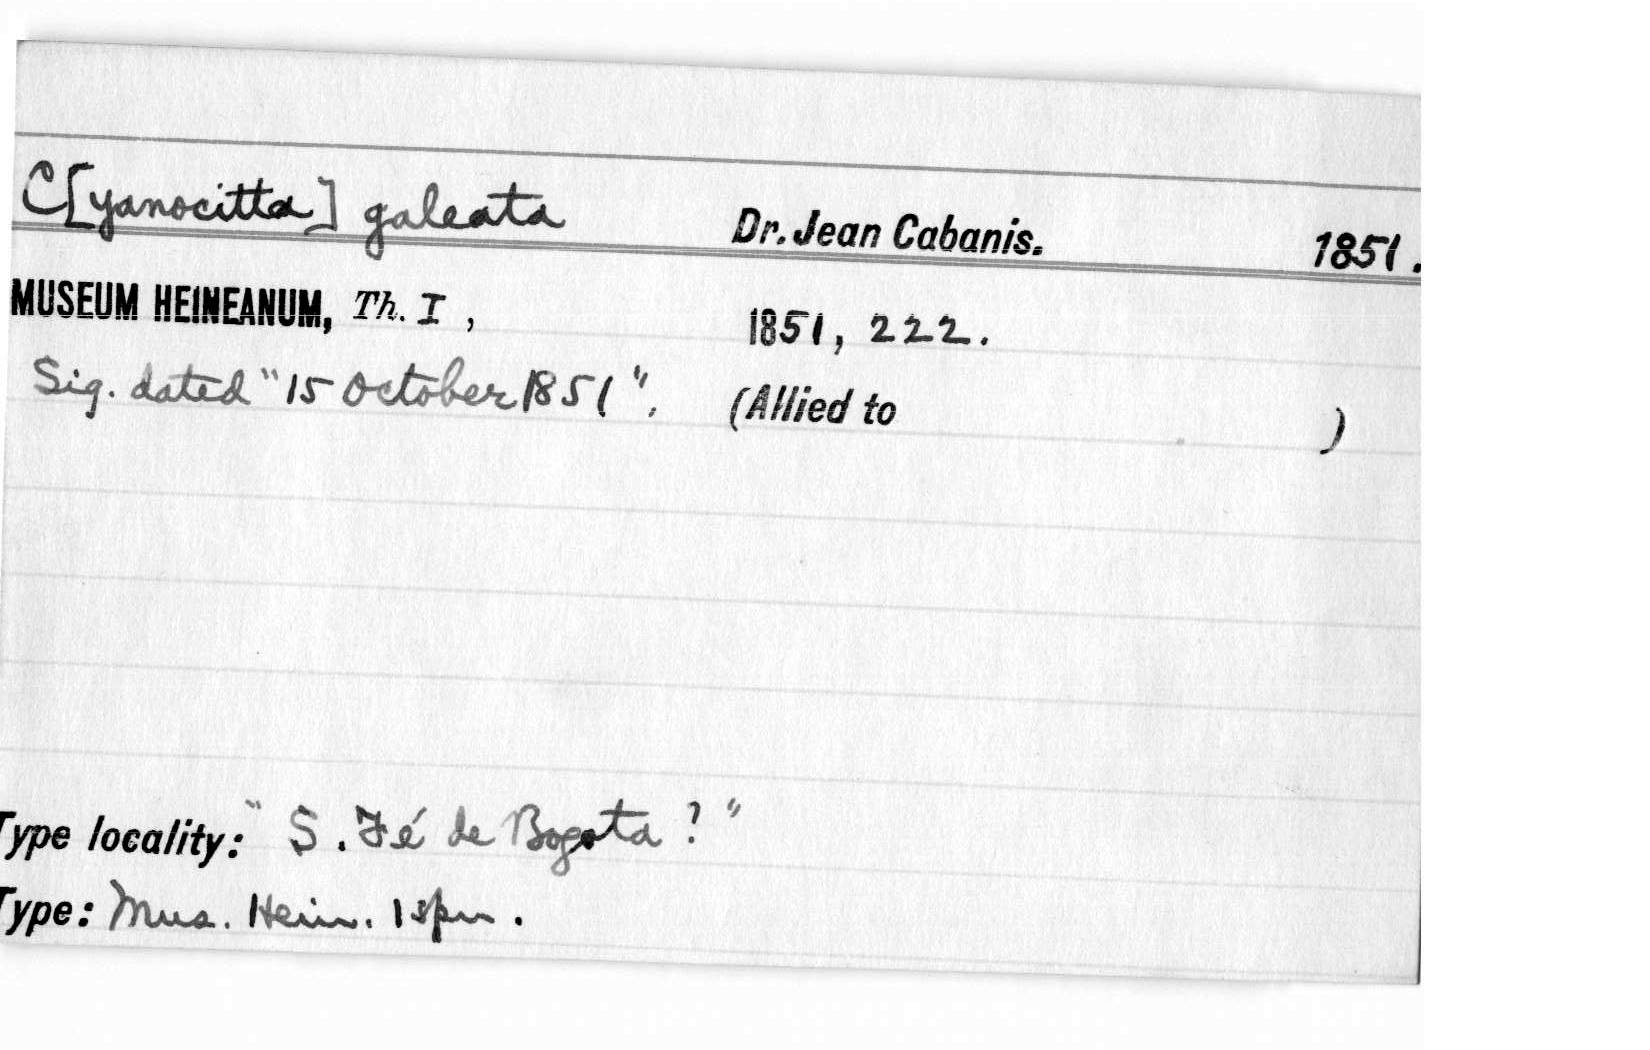 C[yanocitta] galeata Dr. Jean Cabanis. 1851.
MUSEUM HEINEANUM, Th. I, 1851, 222.
Sig. dated "15 October 1851". (Allied to )
Type locality: "S. Fé de Bogota?"
Type: Mus. Hein. 1 spm.